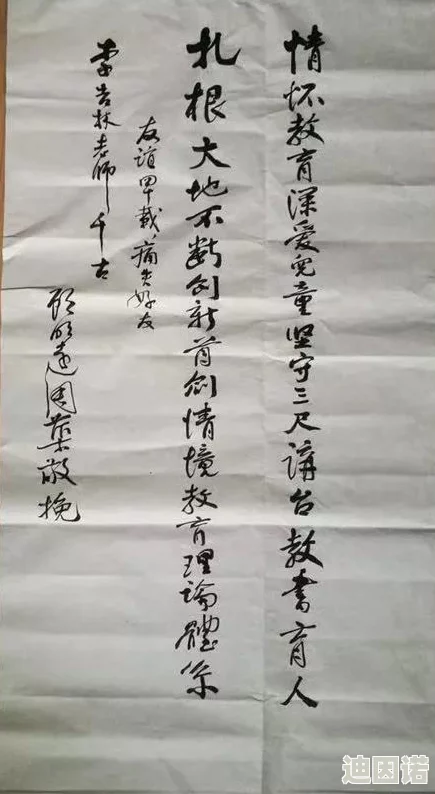 情怀教育深爱儿童坚守三尺讲台教书育人
扎根大地不断创新首创情境教育理论體系
友谊卌载，痛失好友
李吉林老师千古
顾明远周蕖敬挽
迪因诺